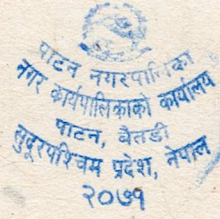 पाटन नगरपालिका
नगर कार्यपालिकाको कार्यालय
पाटन, बैतडी
सुदूरपश्चिम प्रदेश, नेपाल
२०७१